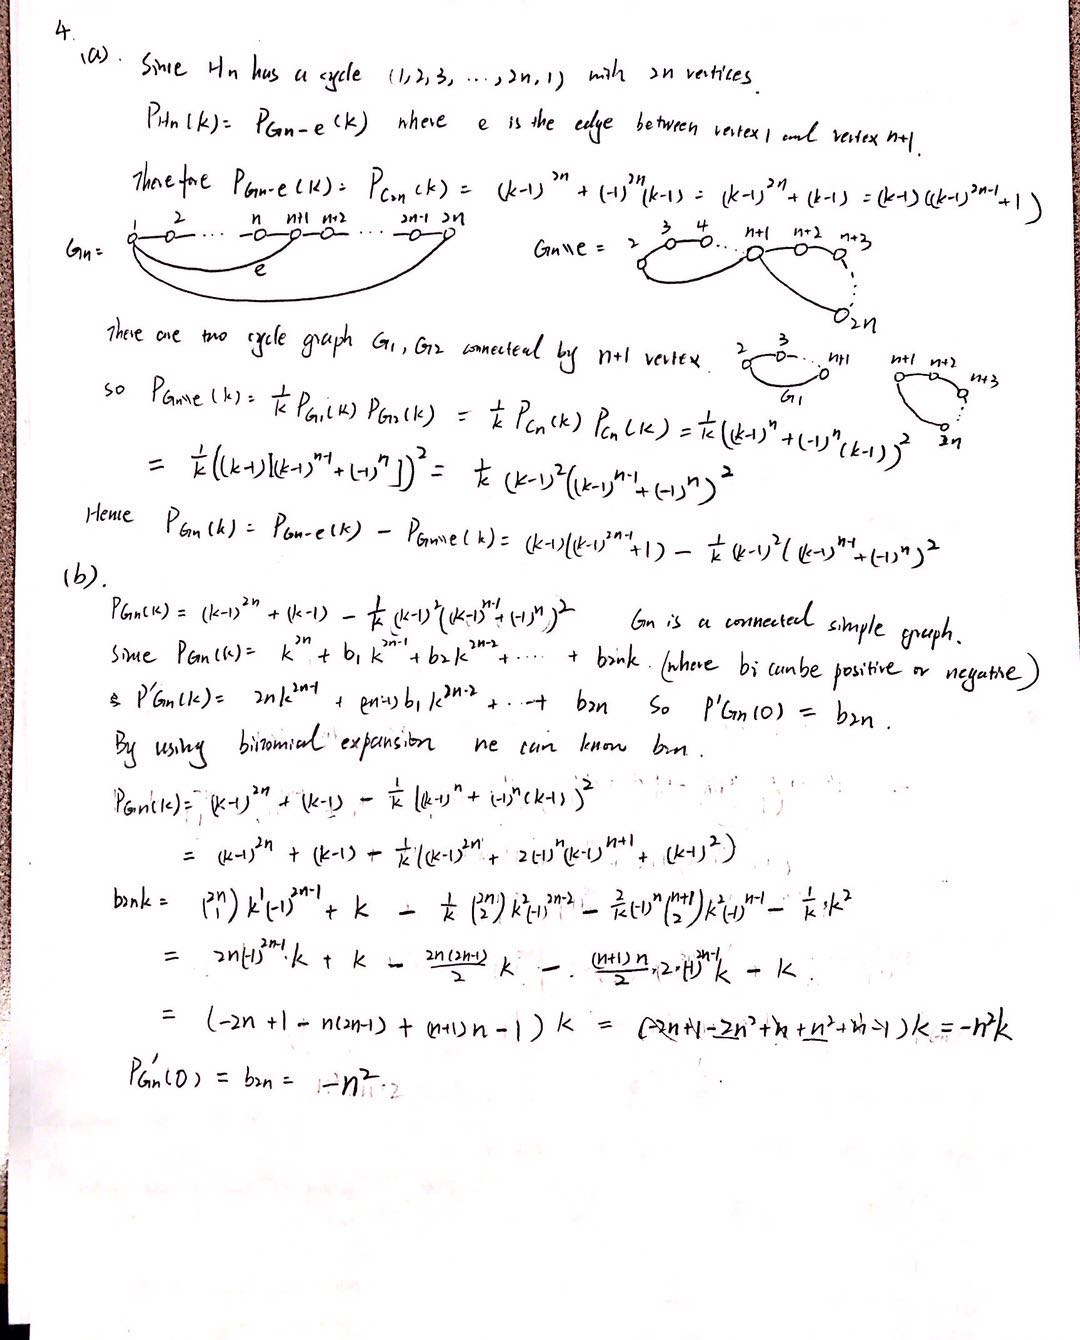 4.
(a). Since Hn has a cycle (1,2,3, ..., 2n, 1) with 2n vertices.
PHn(k) = PGn-e(k) where e is the edge between vertex 1 and vertex n+1.
Therefore PGn-e(k) = PC2n(k) = (k-1)^2n + (-1)^2n(k-1) = (k-1)^2n + (k-1) = (k-1)((k-1)^2n-1 + 1)
1 2 n n+1 n+2 2n-1 2n
Gn = e
Gn\\e = 2 3 4 n+1 n+2 n+3 2n
There are two cycle graph G1, G2 connected by n+1 vertex. 2 3 n+1 G1 n+1 n+2 n+3 2n
so PGn\\e(k) = 1/k PG1(k) PG2(k) = 1/k PCn(k) PCn(k) = 1/k((k-1)^n + (-1)^n(k-1))^2
= 1/k((k-1)[(k-1)^n-1 + (-1)^n])^2 = 1/k (k-1)^2((k-1)^n-1 + (-1)^n)^2
Hence PGn(k) = PGn-e(k) - PGn\\e(k) = (k-1)((k-1)^2n-1 + 1) - 1/k (k-1)^2((k-1)^n-1 + (-1)^n)^2
(b).
PGn(k) = (k-1)^2n + (k-1) - 1/k (k-1)^2((k-1)^n-1 + (-1)^n)^2 Gn is a connected simple graph.
Since PGn(k) = k^2n + b1 k^2n-1 + b2 k^2n-2 + .... + b2nk. (where bi can be positive or negative)
P'Gn(k) = 2nk^2n-1 + (2n-1) b1 k^2n-2 + ... + b2n So P'Gn(0) = b2n.
By using binomial expansion we can know b2n.
PGn(k) = (k-1)^2n + (k-1) - 1/k ((k-1)^n + (-1)^n(k-1))^2
= (k-1)^2n + (k-1) - 1/k((k-1)^2n + 2(-1)^n(k-1)^n+1 + (k-1)^2)
b2nk = (2n 1) k^1(-1)^2n-1 + k - 1/k (2n 2) k^2(-1)^2n-2 - 2/k(-1)^n (n+1 2) k^2(-1)^n-1 - 1/k · k^2
= 2n(-1)^2n-1 · k + k - 2n(2n-1)/2 k - (n+1)n/2 · 2 · (-1)^2n-1 k - k.
= (-2n + 1 - n(2n-1) + (n+1)n - 1) k = (-2n+1-2n^2+n+n^2+n-1)k = -n^2k
P'Gn(0) = b2n = -n^2